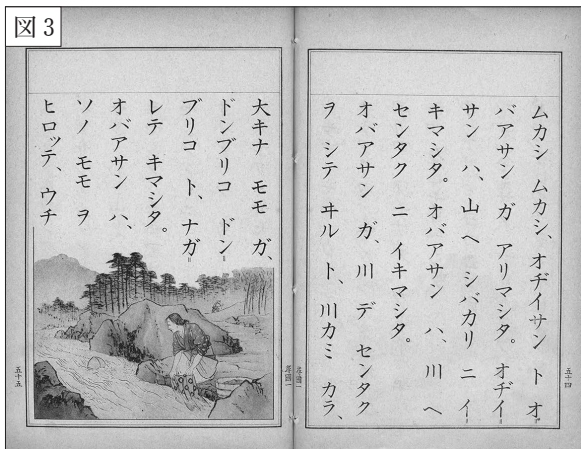 図3
ムカシ ムカシ、オヂイサン ト オ
バアサン ガ アリマシタ。オヂイ
サン ハ、山 ヘ シバカリ ニ イ
キマシタ。オバアサン ハ、川 ヘ
センタク ニ イキマシタ。
オバアサン ガ、川 デ センタク
ヲ シテ ヰル ト、川カミ カラ、
五十四
大キナ モモ ガ、
ドンブリコ ドン
ブリコ ト、ナガ
レテ キマシタ。
オバアサン ハ、
ソノ モモ ヲ
ヒロッテ、ウチ
五十五